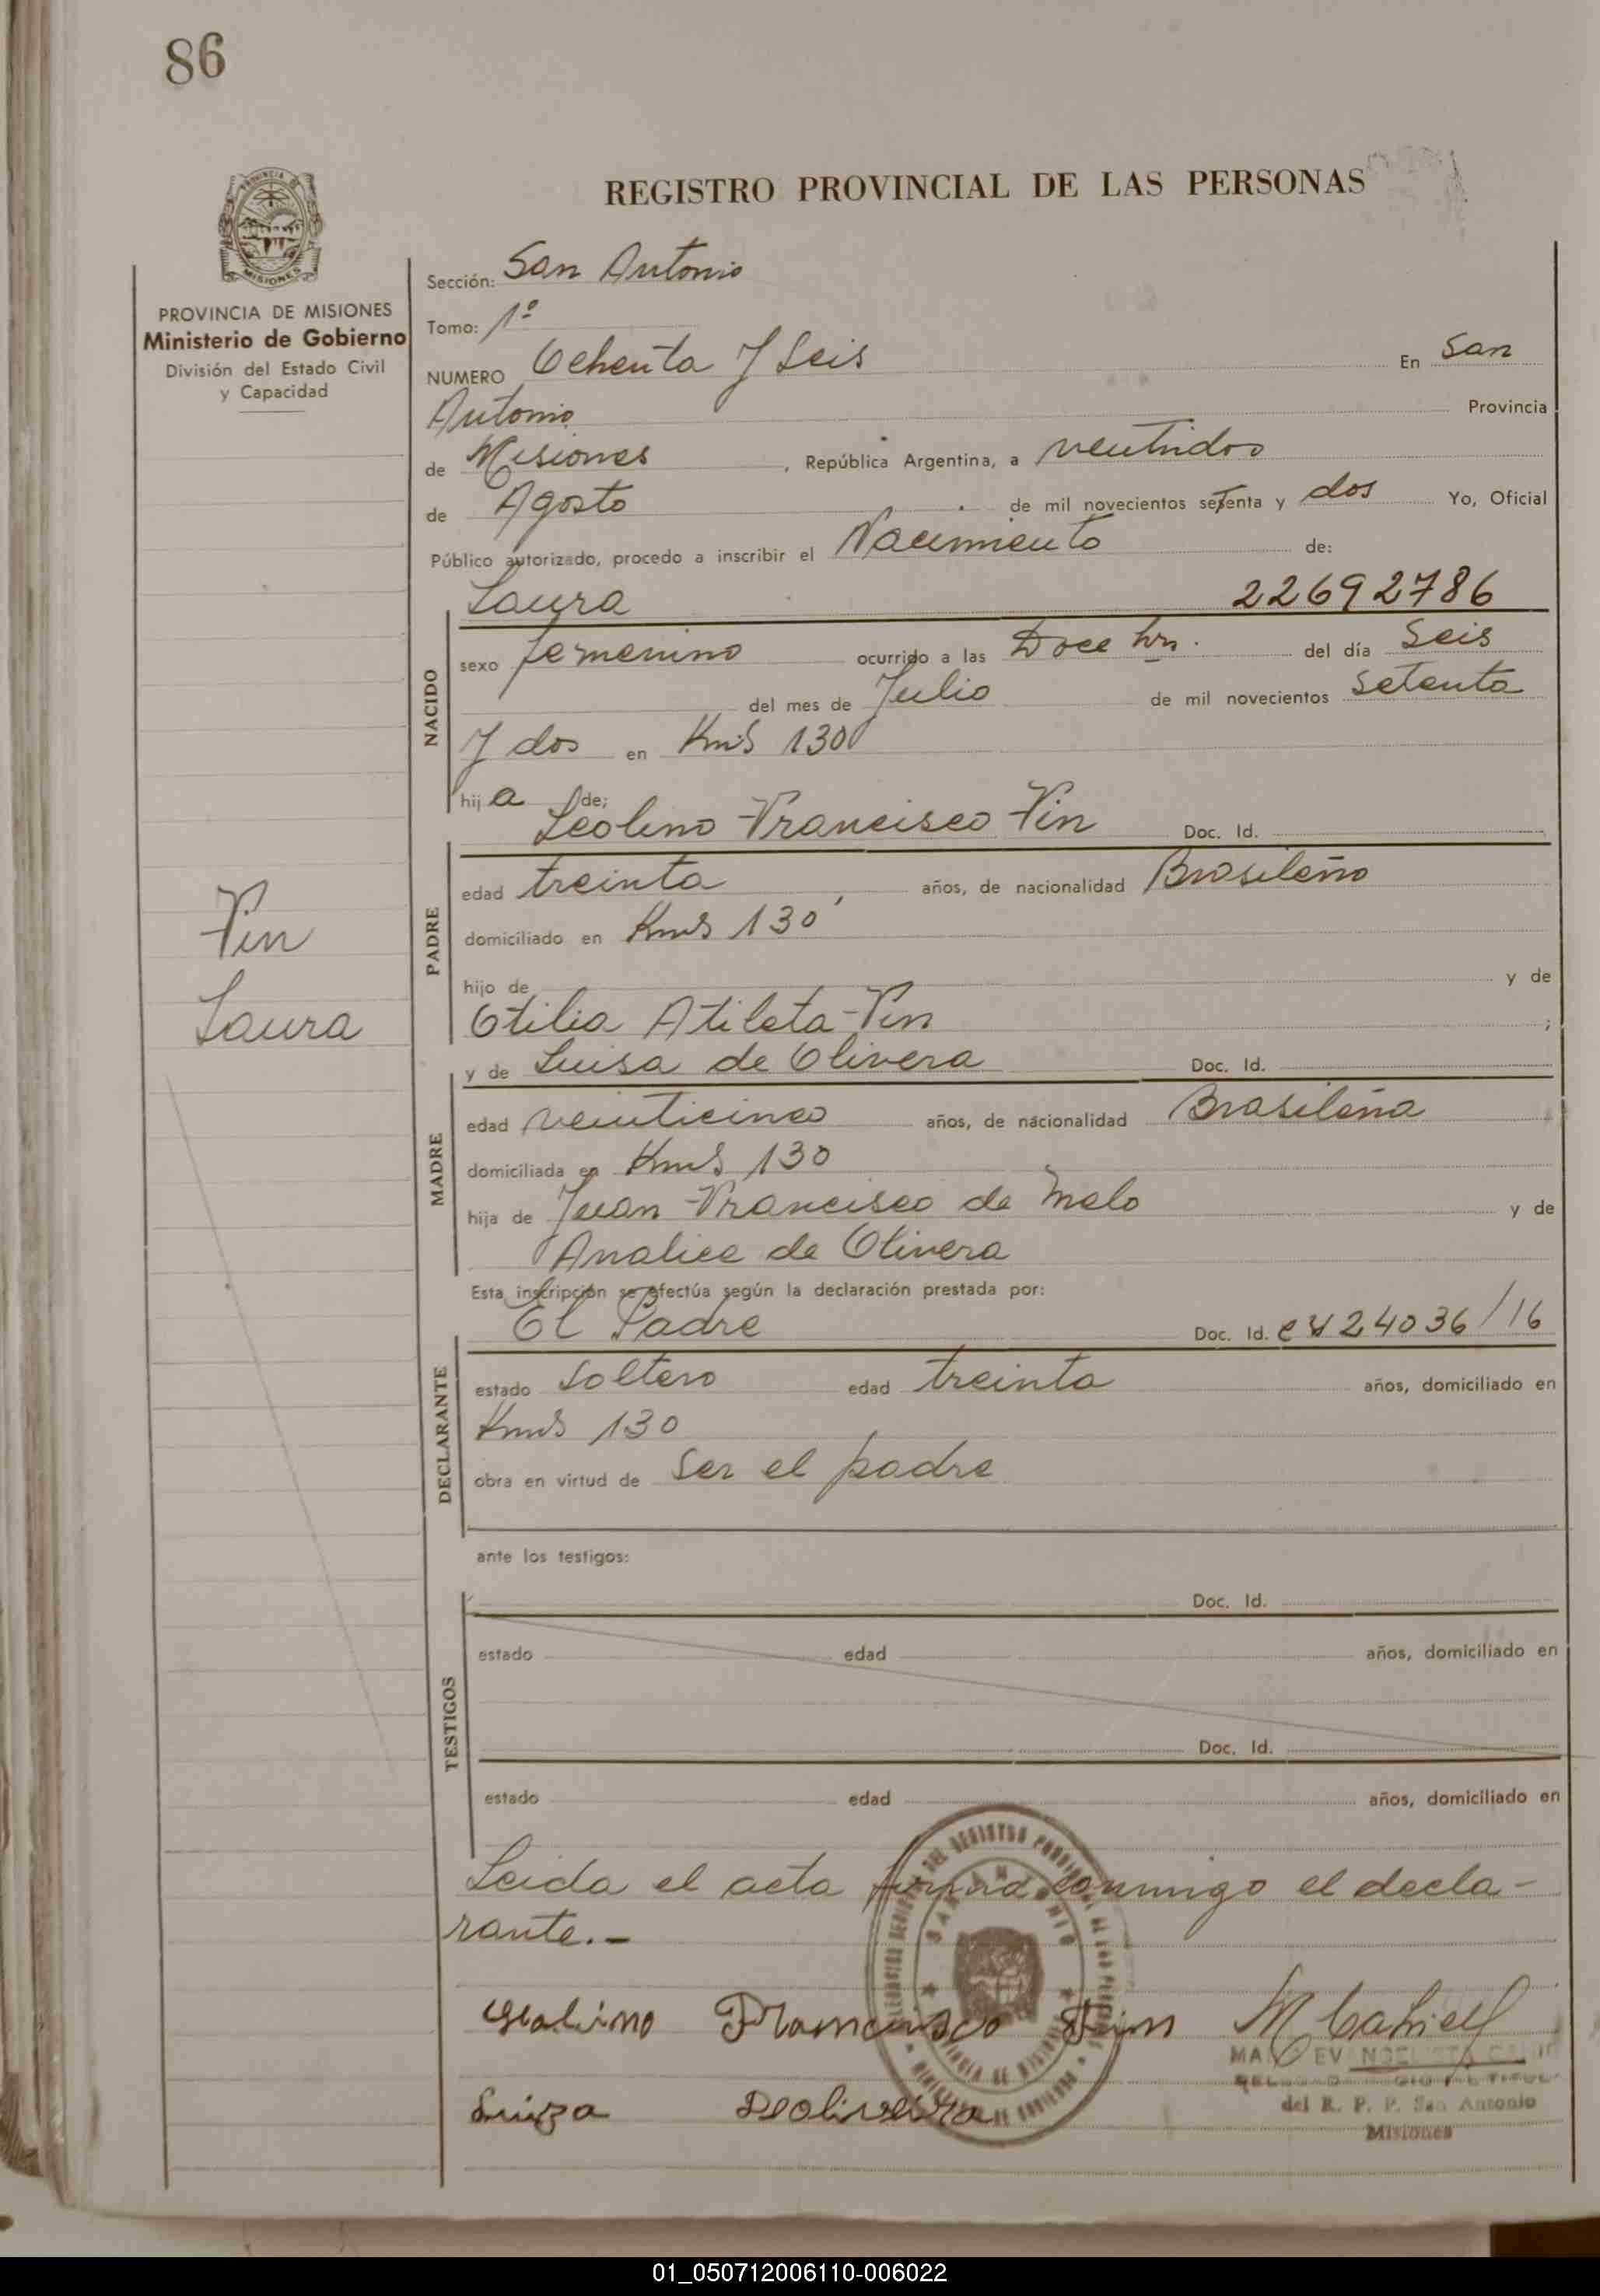 86
REGISTRO PROVINCIAL DE LAS PERSONAS
PROVINCIA DE MISIONES
Ministerio de Gobierno
División del Estado Civil
y Capacidad
Sección: San Antonio
Tomo: 1º
NUMERO Ochenta y Seis En San
Antonio Provincia
de Misiones, República Argentina, a ventidos
de Agosto de mil novecientos setenta y dos Yo, Oficial
Público autorizado, procedo a inscribir el Nacimiento de:
Laura 22692786
NACIDO
sexo femenino ocurrido a las Doce hrs. del día Seis
del mes de Julio de mil novecientos setenta
y dos en Kms 130
hija de;
Leolino Francisco Fin Doc. Id.
PADRE
edad treinta años, de nacionalidad Brasileño
domiciliado en Kms 130
hijo de y de
Otilia Atileta Fin ;
y de Luisa de Olivera Doc. Id.
MADRE
edad veinticinco años, de nacionalidad Brasileña
domiciliada en Kms 130
hija de Juan Francisco de Melo y de
Analice de Olivera
Fin
Laura
Esta inscripción se efectúa según la declaración prestada por:
El Padre Doc. Id. 24036/16
DECLARANTE
estado Soltero edad treinta años, domiciliado en
Kms 130
obra en virtud de Ser el padre
ante los testigos:
TESTIGOS
Doc. Id.
estado edad años, domiciliado en
Doc. Id.
estado edad años, domiciliado en
Leida el acta firma conmigo el decla-
rante.-
Francisco Fin
Luiza Deoliveira
del R. P. P. San Antonio
Misiones
01_050712006110-006022